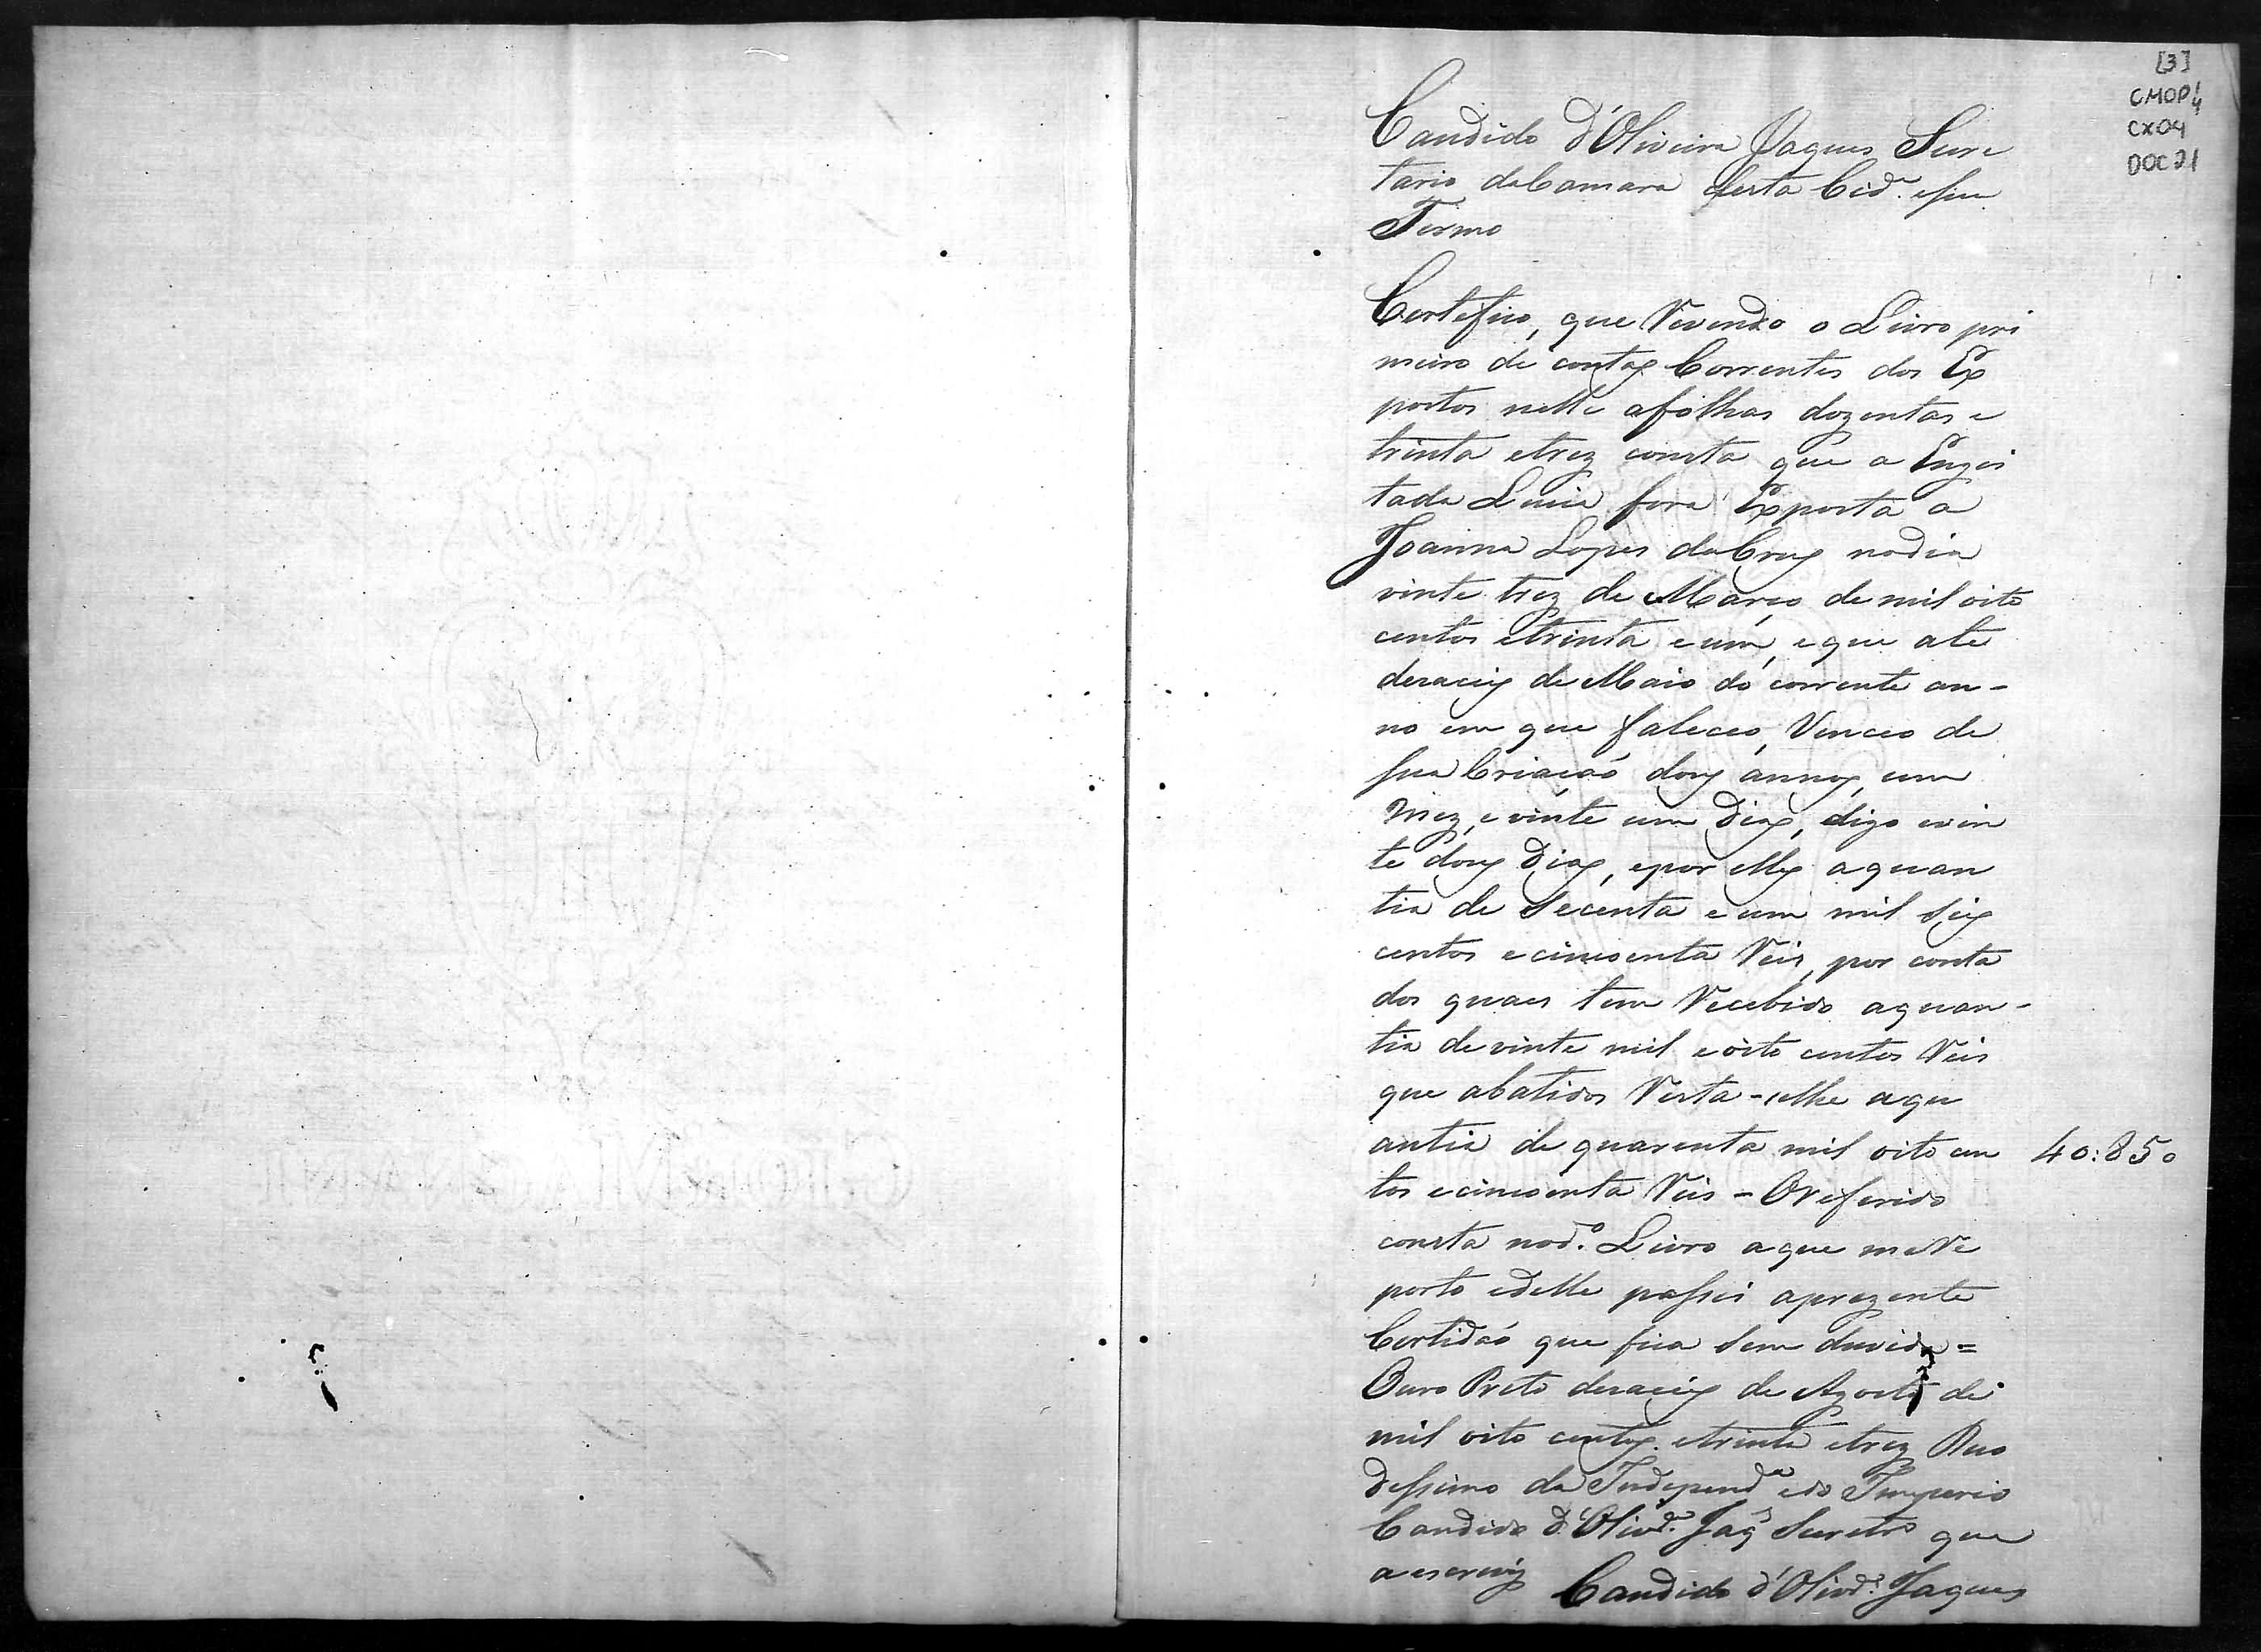 [3]
CMOP 1/4
CX04
DOC 21
Candido d'Oliveira Jaques Secre
tario da Camara desta Cid.e e seu
Termo
Certefico, que Revendo o Livro pri
meiro de contas Correntes dos Ex
postos nelle afolhas dozentas e
trinta etrez consta que a Engei
tada Luiza fora Exposta a
Joanna Lopes da Cruz nodia
vinte trez de Março de mil oito
centos etrinta e um, e que ate
deraceis de Maio do corrente an-
no em que faleceo, Venceo de
sua Criação dous annos, um
mez, e vinte um Dias, digo e vin
te dous Dias, epor elles a quan
tia de Secenta e um mil seis
centos ecincoenta Reis, por conta
dos quaes tem Recebido aquan-
tia de vinte mil e oito centos Reis
que abatidos Resta-selhe aqu
antia de quarenta mil oito cen 40:850
tos ecincoenta Reis - O Referido
consta nod.o Livro aque me Re
porto edelle passei aprezente
Certidão que fica sem duvida=
Ouro Preto deraceis de Agosto de
mil oito centos etrinta etrez Duo
dessimo da Independ.a edo Imperio
Candido d'Oliv.ra Jaq.s Secretr.o que
a escrevy
Candido d'Oliv.ra Jaques